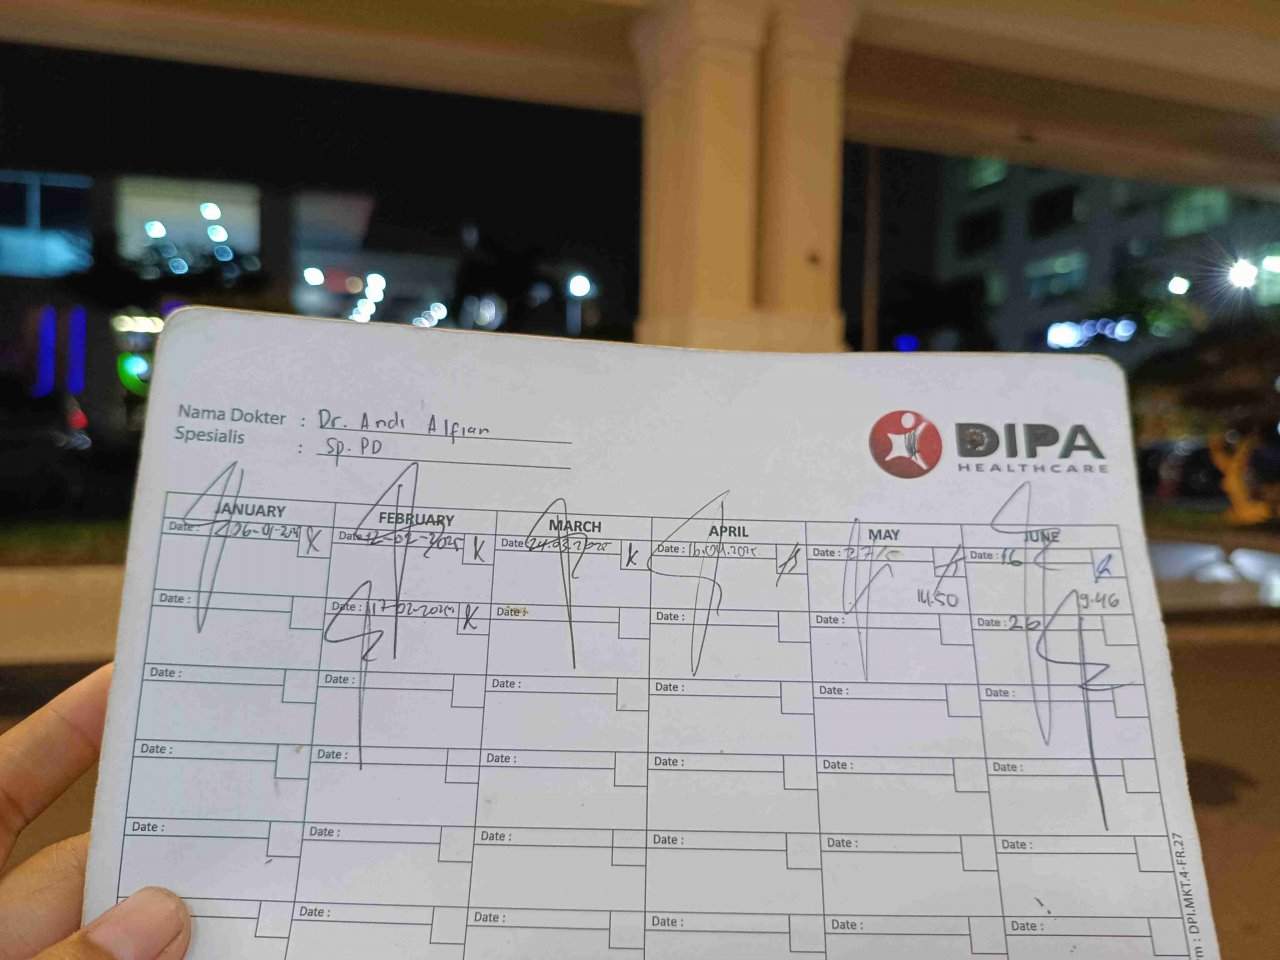 Nama Dokter : Dr. Andi Alfian
Spesialis : Sp. PD
DIPA
HEALTHCARE
JANUARY FEBRUARY MARCH APRIL MAY JUNE
Date : 06-01-2025 K Date : 12-02-2025 K Date : 24.03.2025 K Date : 16.04.2025 Date : 27/5 Date : 16
14.50 9.46
Date : Date : 17-02-2025 K Date : Date : Date : Date : 26
Date : Date : Date : Date : Date : Date :
Date : Date : Date : Date : Date : Date :
Date : Date : Date : Date : Date : Date :
Date : Date : Date : Date : Date :
: DPI.MKT.4-FR.27